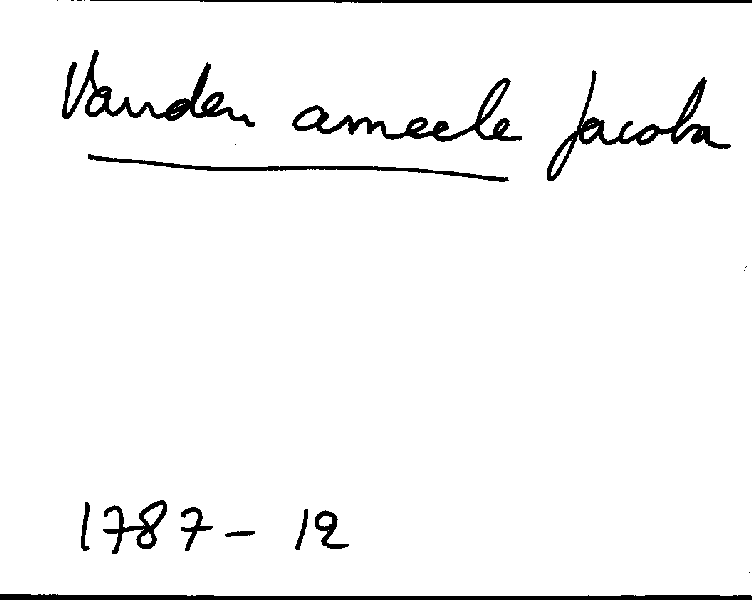 Vanden ameele Jacoba
1787 - 12